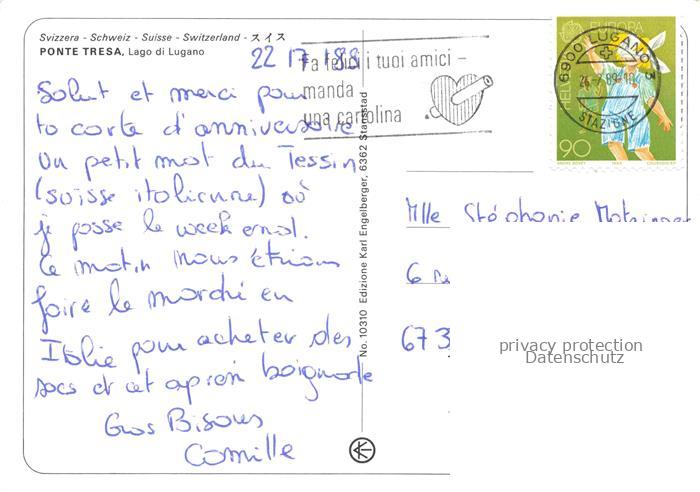 Svizzera - Schweiz - Suisse - Switzerland - スイス
PONTE TRESA, Lago di Lugano
22 17 188
Fa felici i tuoi amici –
manda
una cartolina
6900 LUGANO 3
STAZIONE
EUROPA
HELVETIA
90
Salut et merci pour
ta carte d'anniversaire
Un petit mot du Tessin
(suisse italienne) où
je passe le week end.
Ce matin nous étions
faire le marché en
Italie pour acheter des
sacs et cet aprem baignade
Gros Bisous
Camille
No. 10310 Edizione Karl Engelberger, 6362 Stansstad
Mlle Stéphanie
6
673
privacy protection
Datenschutz